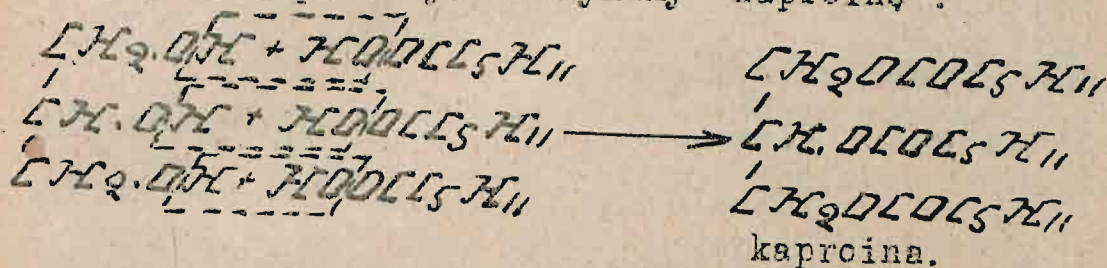 kaproinę".
CH2.OH + HOOCC5H11
CH.OH + HOOCC5H11
CH2.OH + HOOCC5H11
CH2OCOC5H11
CH.OCOC5H11
CH2OCOC5H11
kaproina.